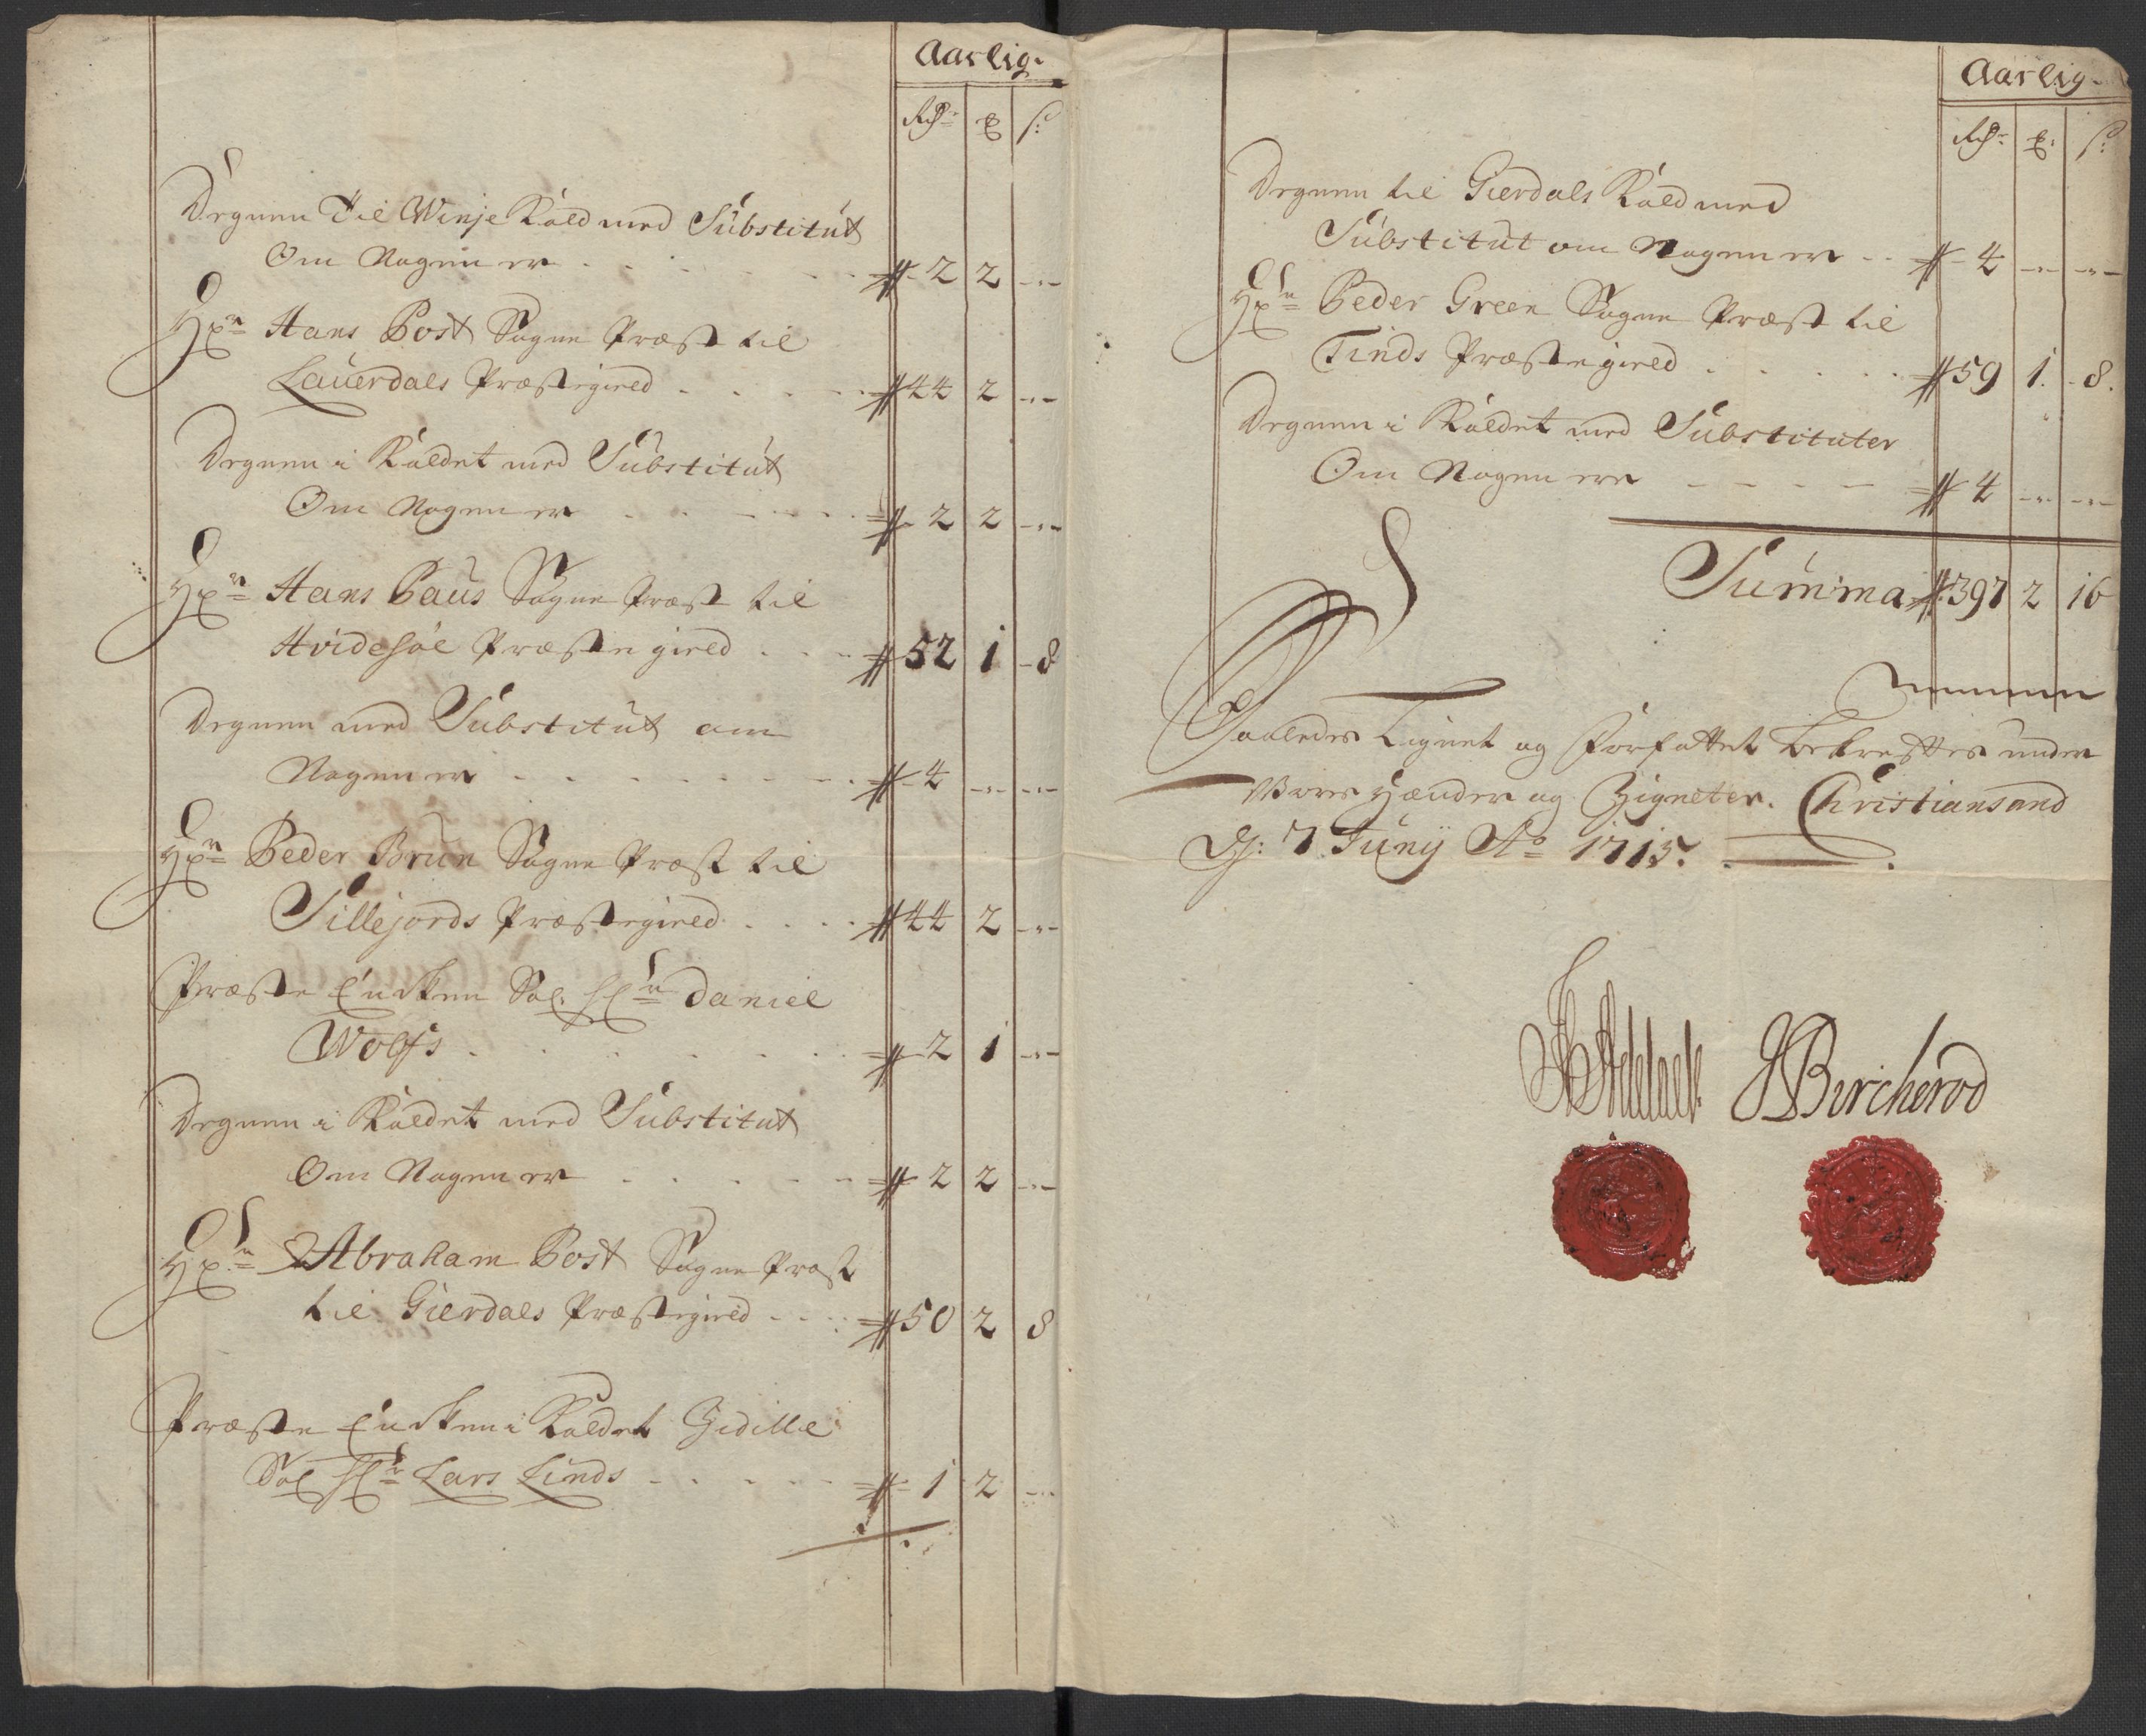 Aarlig.
Rdr. ₰ s:
Degnen Til Winje Kald med Substitut
Om Nogen er - 2 2 -
Hr. Hans Post Sogne Præst til
Lauerdals Præstegield - 44 2 -
Degnen i Kaldet med Substitut
Om Nogen er - 2 2 -
Hr. Hans Paus Sogne Præst til
Hvidesøe Præstegield - 52 1 8
Degnen med Substitut om
Nogen er - 4 - -
Hr. Peder Brun Sogne Præst til
Sillejords Præstegield - 44 2 -
Præste Enken Sal. Hr. Daniel
Wolfs - 2 1 -
Degnen i Kaldet med Substitut
Om Nogen er - 2 2 -
Hr. Abraham Post Sogne Præst
til Gierdals Præstegield - 50 2 8
Præste Enken i Kaldet Zidille
Sal. Hr. Lars Linds - 1 2 -
Aarlig.
Rdr. ₰ s:
Degnen til Gierdals Kald med
Substitut om Nogen er - 4 - -
Hr. Peder Green Sogne Præst til
Tinds Præstegield - 59 1 8.
Degnen i Kaldet med Substituter
Om Nogen ere - 4 - -
Summa 397 2 16
Saaledes Lignet og Forfattet bekreftes under
Vores Hænder og Zigneter. Christiansand
D: 7 Junij Ao 1715.
Adelaer JBircherod